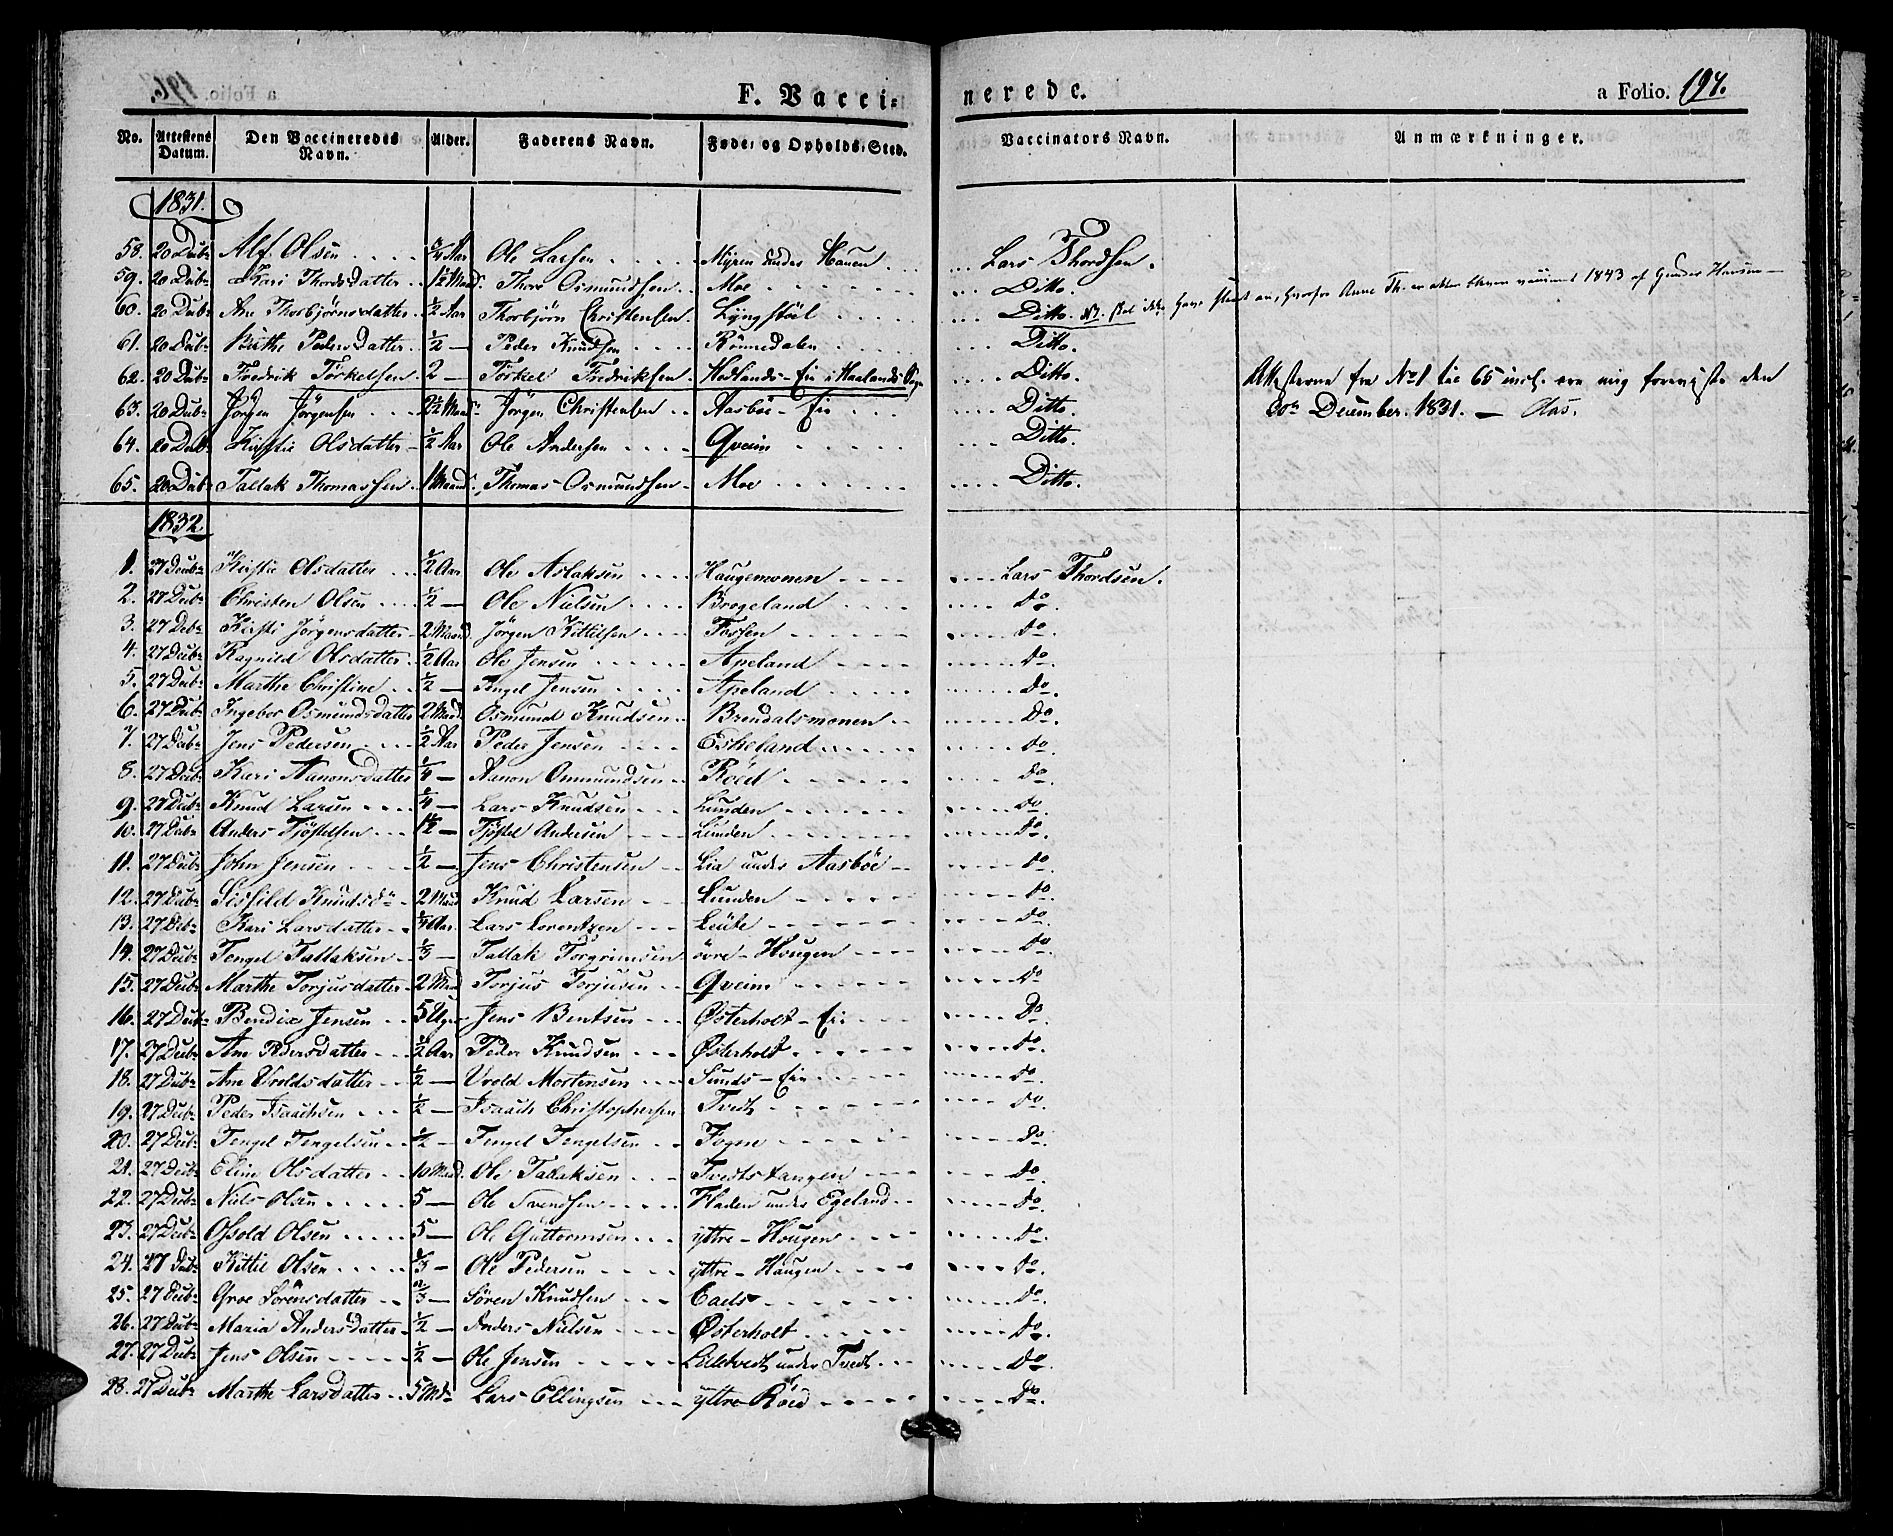 F. Vaccinerede. a Folio. 197.
No. Attestens Datum. Den Vaccineredes Navn. Alder. Faderens Navn. Føde- og Opholds-Sted. Vaccinators Navn. Anmærkninger.
1831.
58. 20 Decbr Alf Olsen 3/4 Aar Ole Larsen Myren under Hauen Lars Thordsen.
59. 20 Decbr Kari Thordsdatter Maad. Thore Osmundsen Moe Ditto.
60. 20 Decbr Ane Thorbjörnsdatter 1/2 Aar Thorbjörn Christensen Lyngstöl Ditto. NB. skal ikke have slaaet an, hvorfor Anne Th. er atter bleven vaccineret 1843 af Gunder Hansen
61. 20 Decbr Birthe Pedersdatter 1/2 — Peder Knudsen Rönnedalen Ditto.
62. 20 Decbr Fredrik Törkelsen 2 — Törkel Fredriksen Hödlands-Eie i Haalands Ditto. Attesterne fra No 1 til 65 incl. ere mig foreviiste den
63. 20 Decbr Jörgen Jörgensen 2 1/2 Maad. Jörgen Christensen Aasböe-Eie Ditto. 30te December 1831. — Aas.
64. 20 Decbr Kirstie Olsdatter 1/2 Aar Ole Andersen Qveim Ditto.
65. 20 Decbr Tallak Thomassen 1 Maaned. Thomas Osmundsen Moe Ditto.
1832
1. 27 Decbr Kirstie Olsdatter 1/2 Aar Ole Aslaksen Haugemonen Lars Thordsen.
2. 27 Decbr Christen Olsen 1/2 — Ole Nielsen Brogeland do.
3. 27 Decbr Kirsti Jörgensdatter 2 Maaned. Jörgen Kittilsen Fossen do.
4. 27 Decbr Ragnild Olsdatter 1/2 Aar Ole Jensen Apeland do.
5. 27 Decbr Marthe Christine 1/2 — Tengel Jensen Apeland do.
6. 27 Decbr Ingebor Osmundsdatter 2 Maad. Osmund Knudsen Brendalsmonen Do.
7. 27 Decbr Jens Pedersen 1/2 Aar Peder Jensen Eskeland do.
8. 27 Decbr Kari Aanonsdatter 1/4 — Aanon Ommundsen Röed do.
9. 27 Decbr Knud Larsen 1/4 — Lars Knudsen Lunden do.
10. 27 Decbr Anders Tjöstelsen 1 1/2 — Tjöstel Andersen Lunden do.
11. 27 Decbr John Jensen 1/2 — Jens Christensen Lia under Aasböe do.
12. 27 Decbr Sissild Knudsdr 2 Maad Knud Larsen Lunden do.
13. 27 Decbr Kari Larsdatter 3/4 Aar. Lars Lorentzen Leite do.
14. 27 Decbr Tengel Tallaksen 1/3 — Tallak Torgrimsen övre-Hougen do.
15. 27 Decbr Marthe Torjusdatter 2 Maad Torjus Torjusen Qveim do
16. 27 Decbr Bendix Jensen 5 Uger Jens Bentsen Østerholt-Eie Do.
17. 27 Decbr Ane Pedersdatter 1/2 Aar Peder Knudsen Østerholt do.
18. 27 Decbr Ane Uvoldsdatter 1/2 — Uvold Mortensen Sunds-Eie do.
19. 27 Decbr Peder Isaachsen 1/2 — Isaach Christophersen Tvedt do.
20. 27 Decbr Tengel Tengelsen 1/2 — Tengel Tengelsen Fogne do.
21. 27 Decbr Eline Olsdatter 10 Maad. Ole Tallaksen Tvedtstangen do.
22. 27 Decbr Niels Olsen 5 — Ole Svendsen Fladen under Egeland do.
23. 27 Decbr Ossold Olsen 5 — Ole Guttormsen yttre-Hougen do.
24. 27 Decbr Kittil Olsen 1/3 — Ole Pedersen yttre-Haugen do.
25. 27 Decbr Groe Sörensdatter 2/3 — Sören Knudsen Eads do.
26. 27 Decbr Maria Andersdatter 1/2 — Anders Nielsen Østerholt do.
27. 27 Decbr Jens Olsen 1/2 — Ole Jensen Lilletvedt under Tvedt Do.
28. 27 Decbr Marthe Larsdatter 5 Mdr Lars Ellingsen yttre Röed Do.